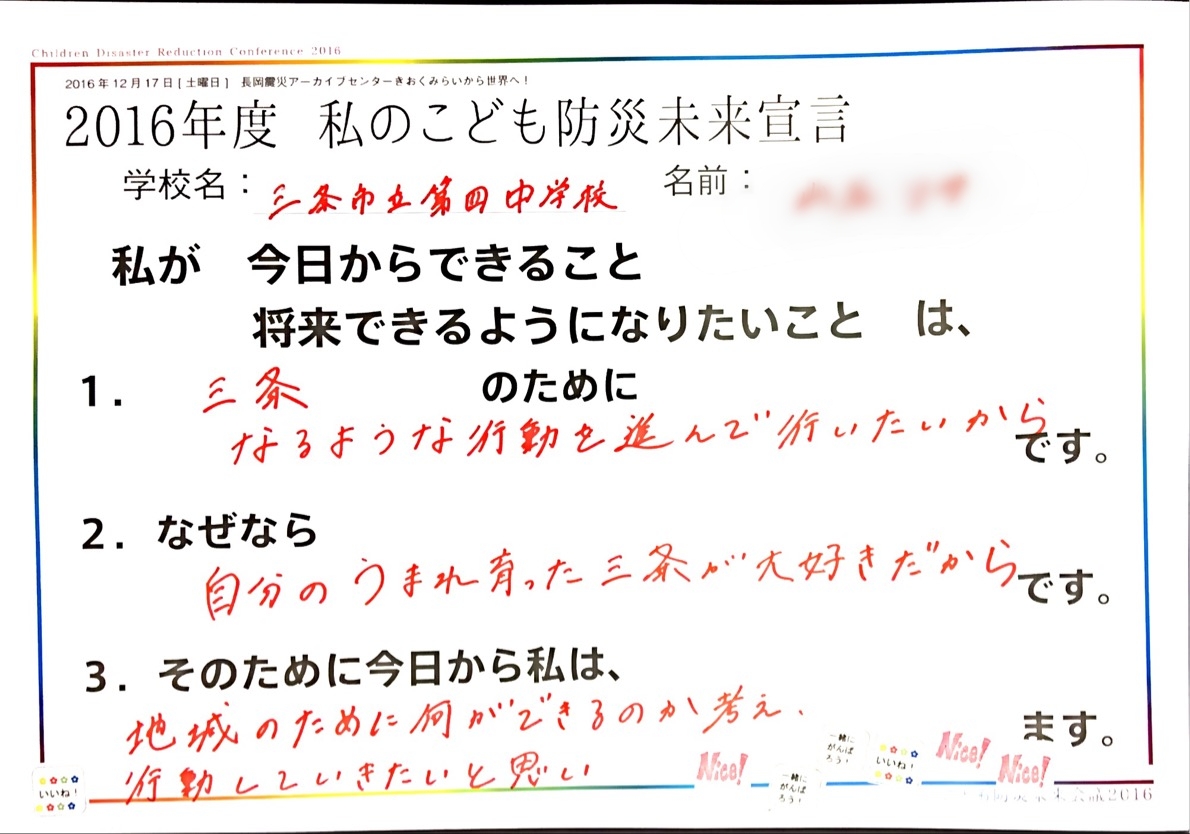 Children Disaster Reduction Conference 2016
2016年12月17日[土曜日] 長岡震災アーカイブセンターきおくみらいから世界へ！
2016年度 私のこども防災未来宣言
学校名： 三条市立第四中学校 名前：
私が 今日からできること
将来できるようになりたいこと は、
1. 三条 のために
なるような行動を進んで行いたいから です。
2. なぜなら
自分のうまれ育った三条が大好きだから です。
3. そのために今日から私は、
地域のために何ができるのか考え、 ます。
行動していきたいと思い
いいね！
Nice!
一緒にがんばろう！
一緒にがんばろう！
いいね！
Nice!
Nice!
会議2016